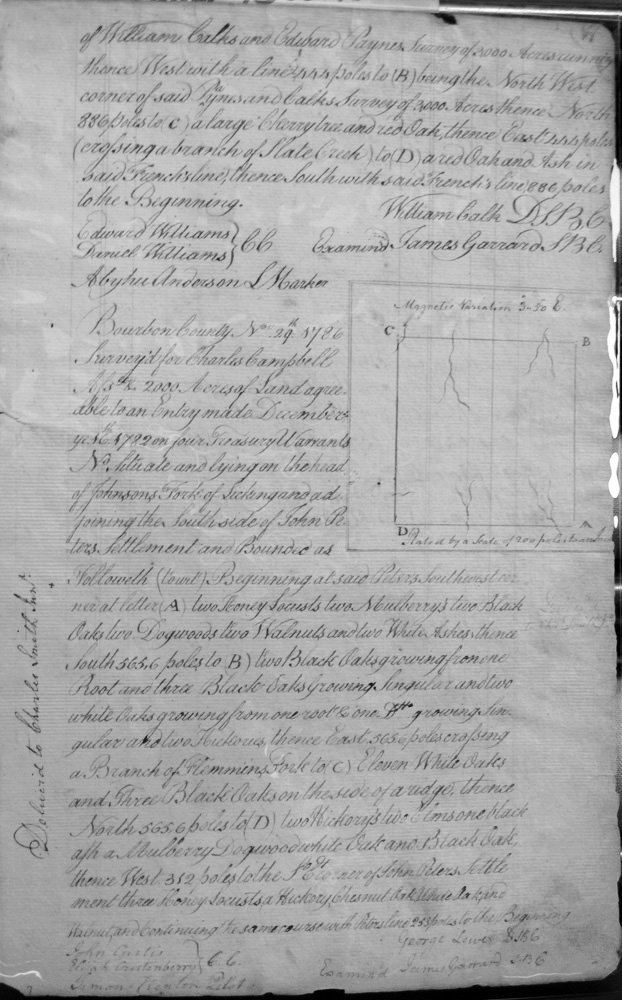 of William Calks and Edward Paynes Survey of 3000 Acres running
thence West with a line 444 poles to (B) being the North West
corner of said Pynes and Calks Survey of 3000 Acres thence North
886 poles to C) a large Cherry tree and red Oak, thence East 444 poles
(crossing a branch of Slate Creek) to (D) a red Oak and Ash in
said French's line, thence South with said French's line 886 poles
to the Beginning.
William Calk D.S.B.C
Edward Williams
Daniel Williams } CC
Examind James Garrard S.B.C.
Abyhu Anderson L Marker
Bourbon County, Nr. 29th 1786
Survey'd for Charles Campbell
Ass'ee 2000 Acres of Land agree-
able to an Entry made December
ye. 16 1782 on four Treasury Warrants
No. Situate and lying on the head
of Johnsons Fork of Licking and ad-
joining the South side of John Pe-
ters Settlement and Bounded as
Followeth (towit) Beginning at said Peters Southwest cor
ner at letter (A) two Honey Locusts two Mulberrys two Black
Oaks two Dogwoods two Walnuts and two White Ashes, thence
South 565,6 poles to B) two Black Oaks growing from one
Root and three Black Oaks Growing Singular and two
white Oaks growing from one root & one Wte growing Sin-
gular and two Hickories, thence East 565,6 poles crossing
a Branch of Flemmins Fork to C) Eleven White Oaks
and Three Black Oaks on the side of a ridge, thence
North 565,6 poles to (D) two Hickorys two Elms one black
ash a Mulberry Dogwood white Oak and Black Oak,
thence West 312 poles to the Sºt corner of John Peters Settle
ment three Honey Locusts a Hickory, Chesnut Oak, White Oak, and
Walnut, and Continuing the same course with Peters line 253 poles to the Beginning
George Lewis DSBC
John Curtis
Elijah Crustenberry } C.C.
Examin'd James Garrard SBC
Simon Kenton Pilot
Magnetic Variation 3-50 E.
C
B
D
A
Plated by a Scale of 200 poles to an Inch
Deliver'd to Charles Smith Junr.